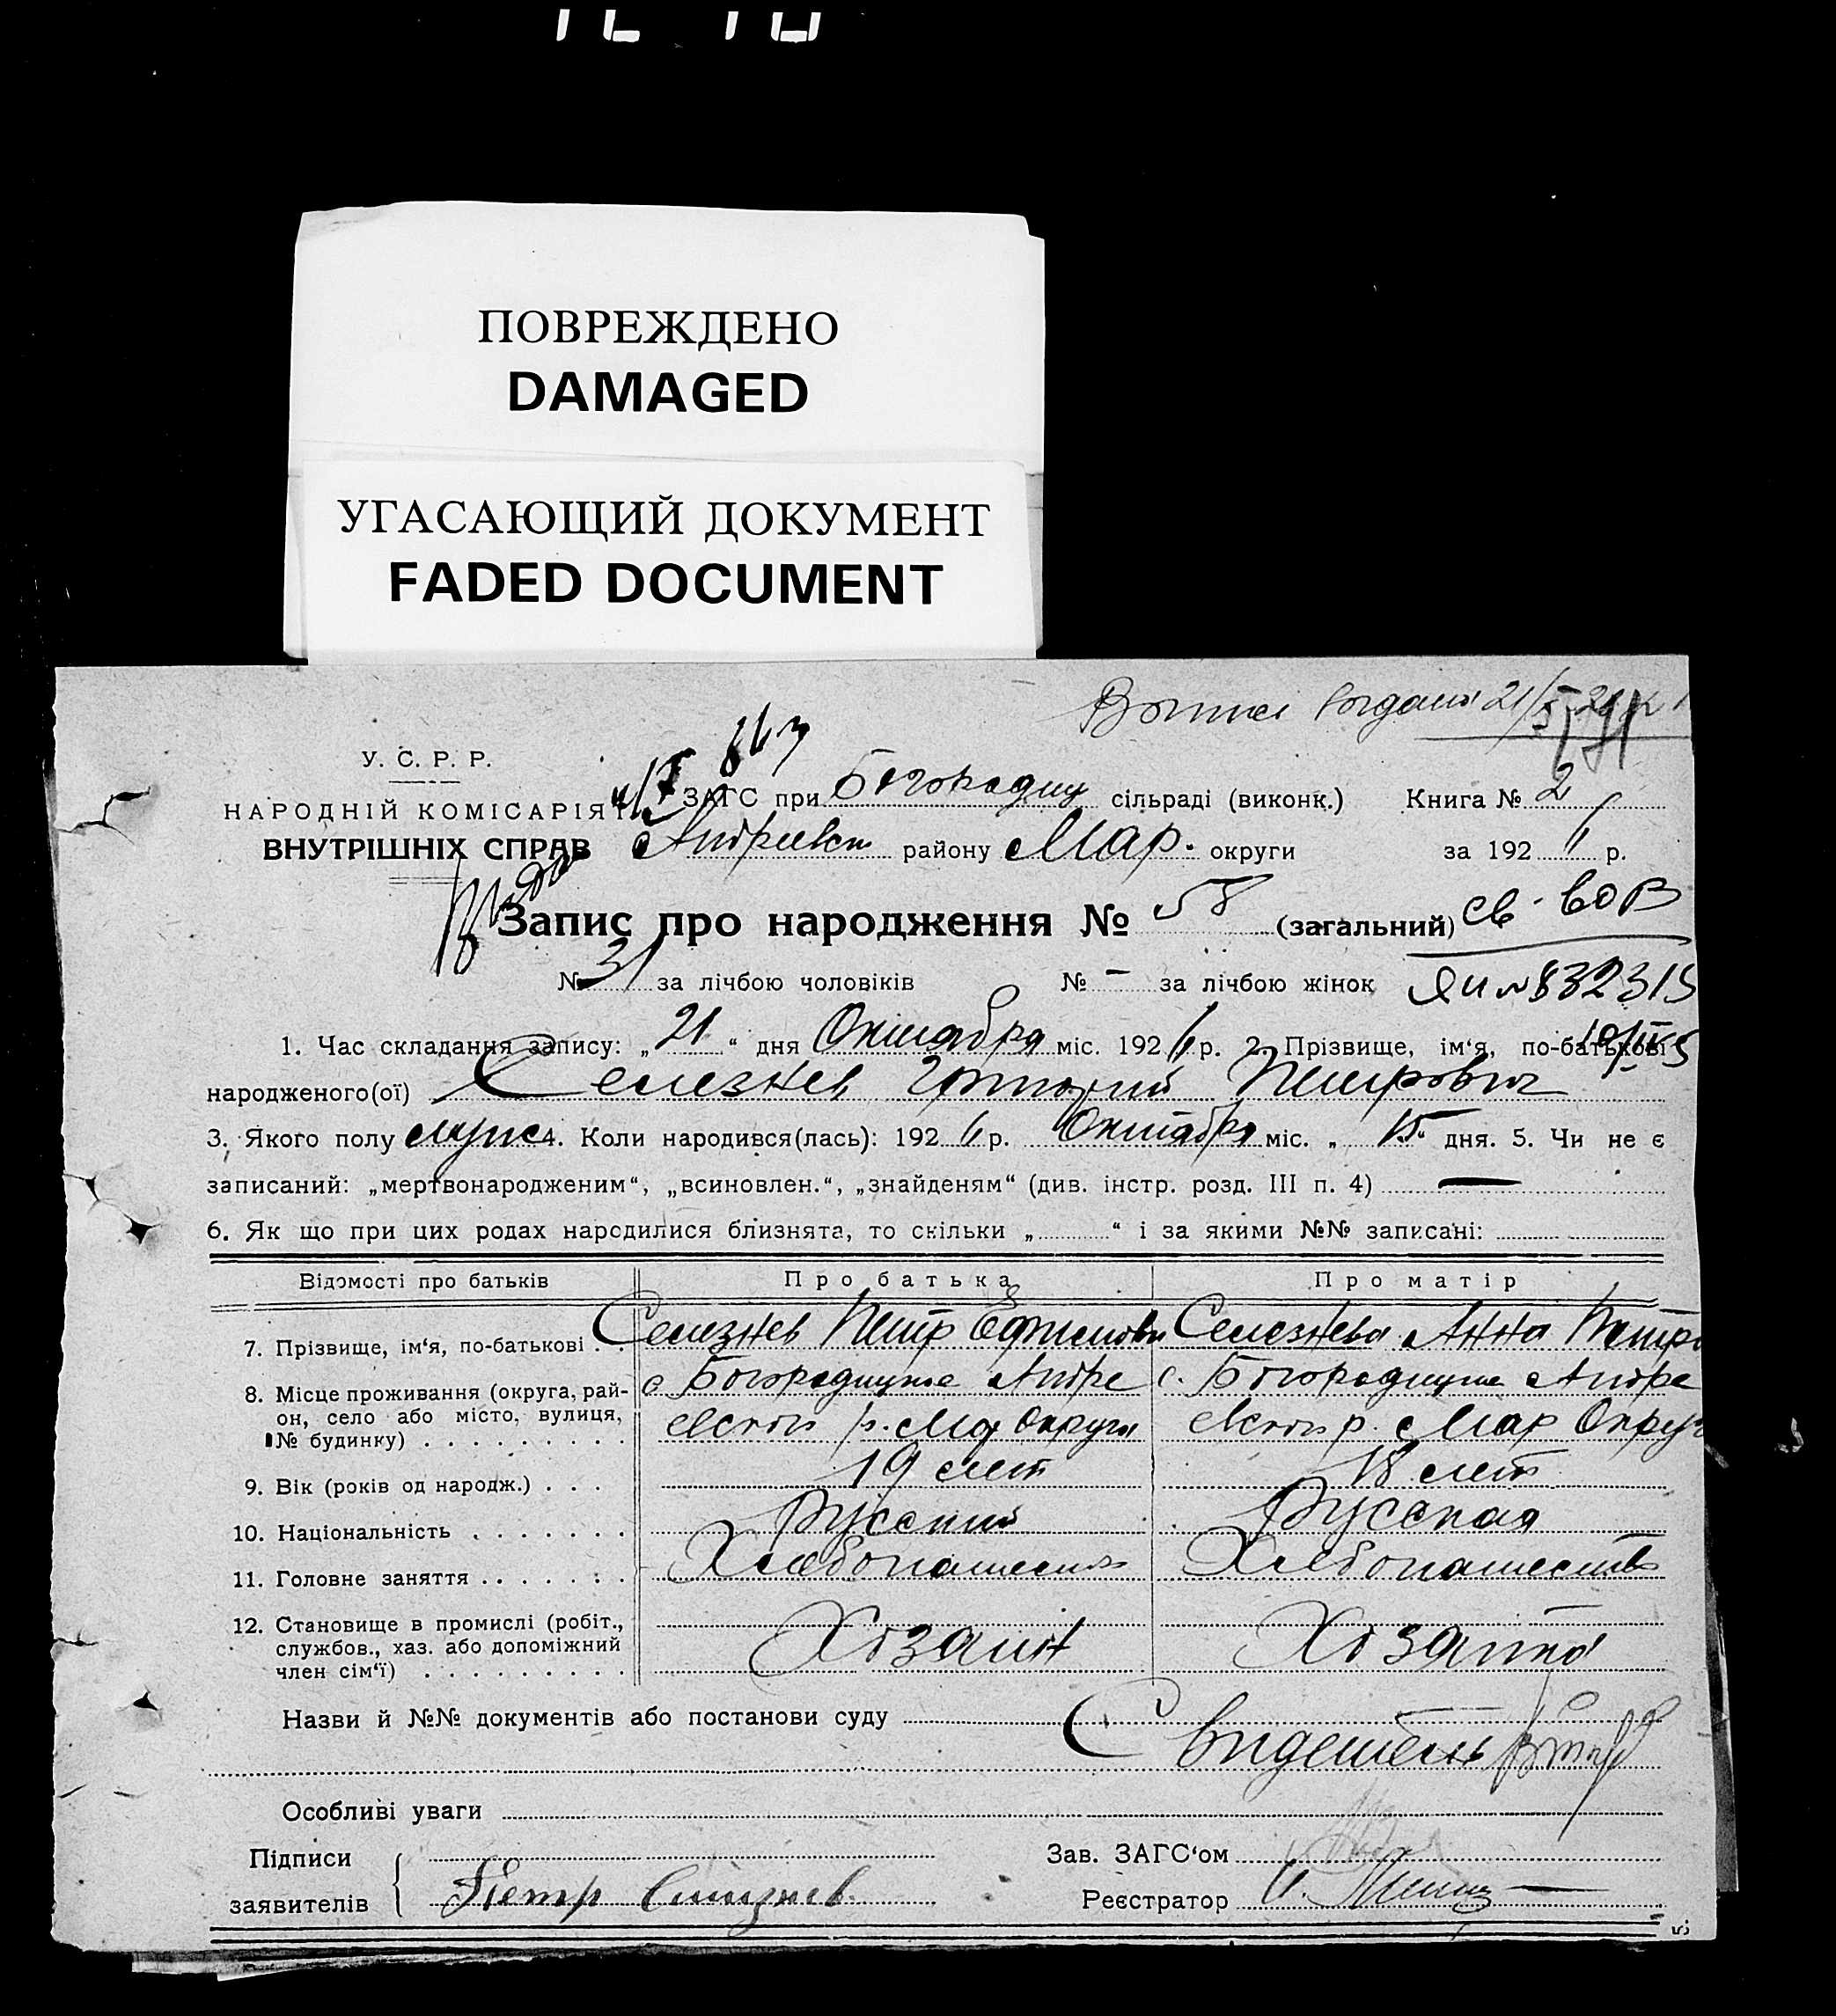 ПОВРЕЖДЕНО
DAMAGED
УГАСАЮЩИЙ ДОКУМЕНТ
FADED DOCUMENT
У. С. Р. Р.
НАРОДНІЙ КОМІСАРІЯТ
ВНУТРІШНІХ СПРАВ
ЗАГС при Богородиц сільраді (виконк.) Книга № 2
Андреевск району Мар. округи за 1926 р.
Запис про народження № 58 (загальний) св-во В
№ 31 за лічбою чоловіків № - за лічбою жінок ЯИ № 832315
1. Час складання запису: „21“ дня Октабря міс. 1926 р. 2. Прізвище, ім‘я, по-батькові
народженого(ої) Селезнев Григорий Петрович
3. Якого полу муж 4. Коли народився(лась): 1926 р. Октабря міс. „15“ дня. 5. Чи не є
записаний: „мертвонародженим“, „всиновлен.“, „знайденям“ (див. інстр. розд. III п. 4) —
6. Як що при цих родах народилися близнята, то скільки „ “ і за якими №№ записані:
Відомості про батьків Про батька Про матір
7. Прізвище, ім‘я, по-батькові . . Селезнев Петр Ефимови Селезнева Анна Петро
8. Місце проживання (округа, рай- с Богородицке Андре с. Богородицке Андре
он, село або місто, вулиця,
№ будинку) евском р. Мар Округи евском р. Мар Округ
9. Вік (років од народж.) . . . 19 лет 18 лет
10. Національність Русский Русская
11. Головне заняття Хлебопашест Хлебопашеств
12. Становище в промислі (робіт.,
службов., хаз. або допоміжний
член сім‘ї) Хозаин Хозайка
Назви й №№ документів або постанови суду
Свидетель
Особливі уваги
Підписи Зав. ЗАГС‘ом
заявителів Петр Селезнев Реєстратор